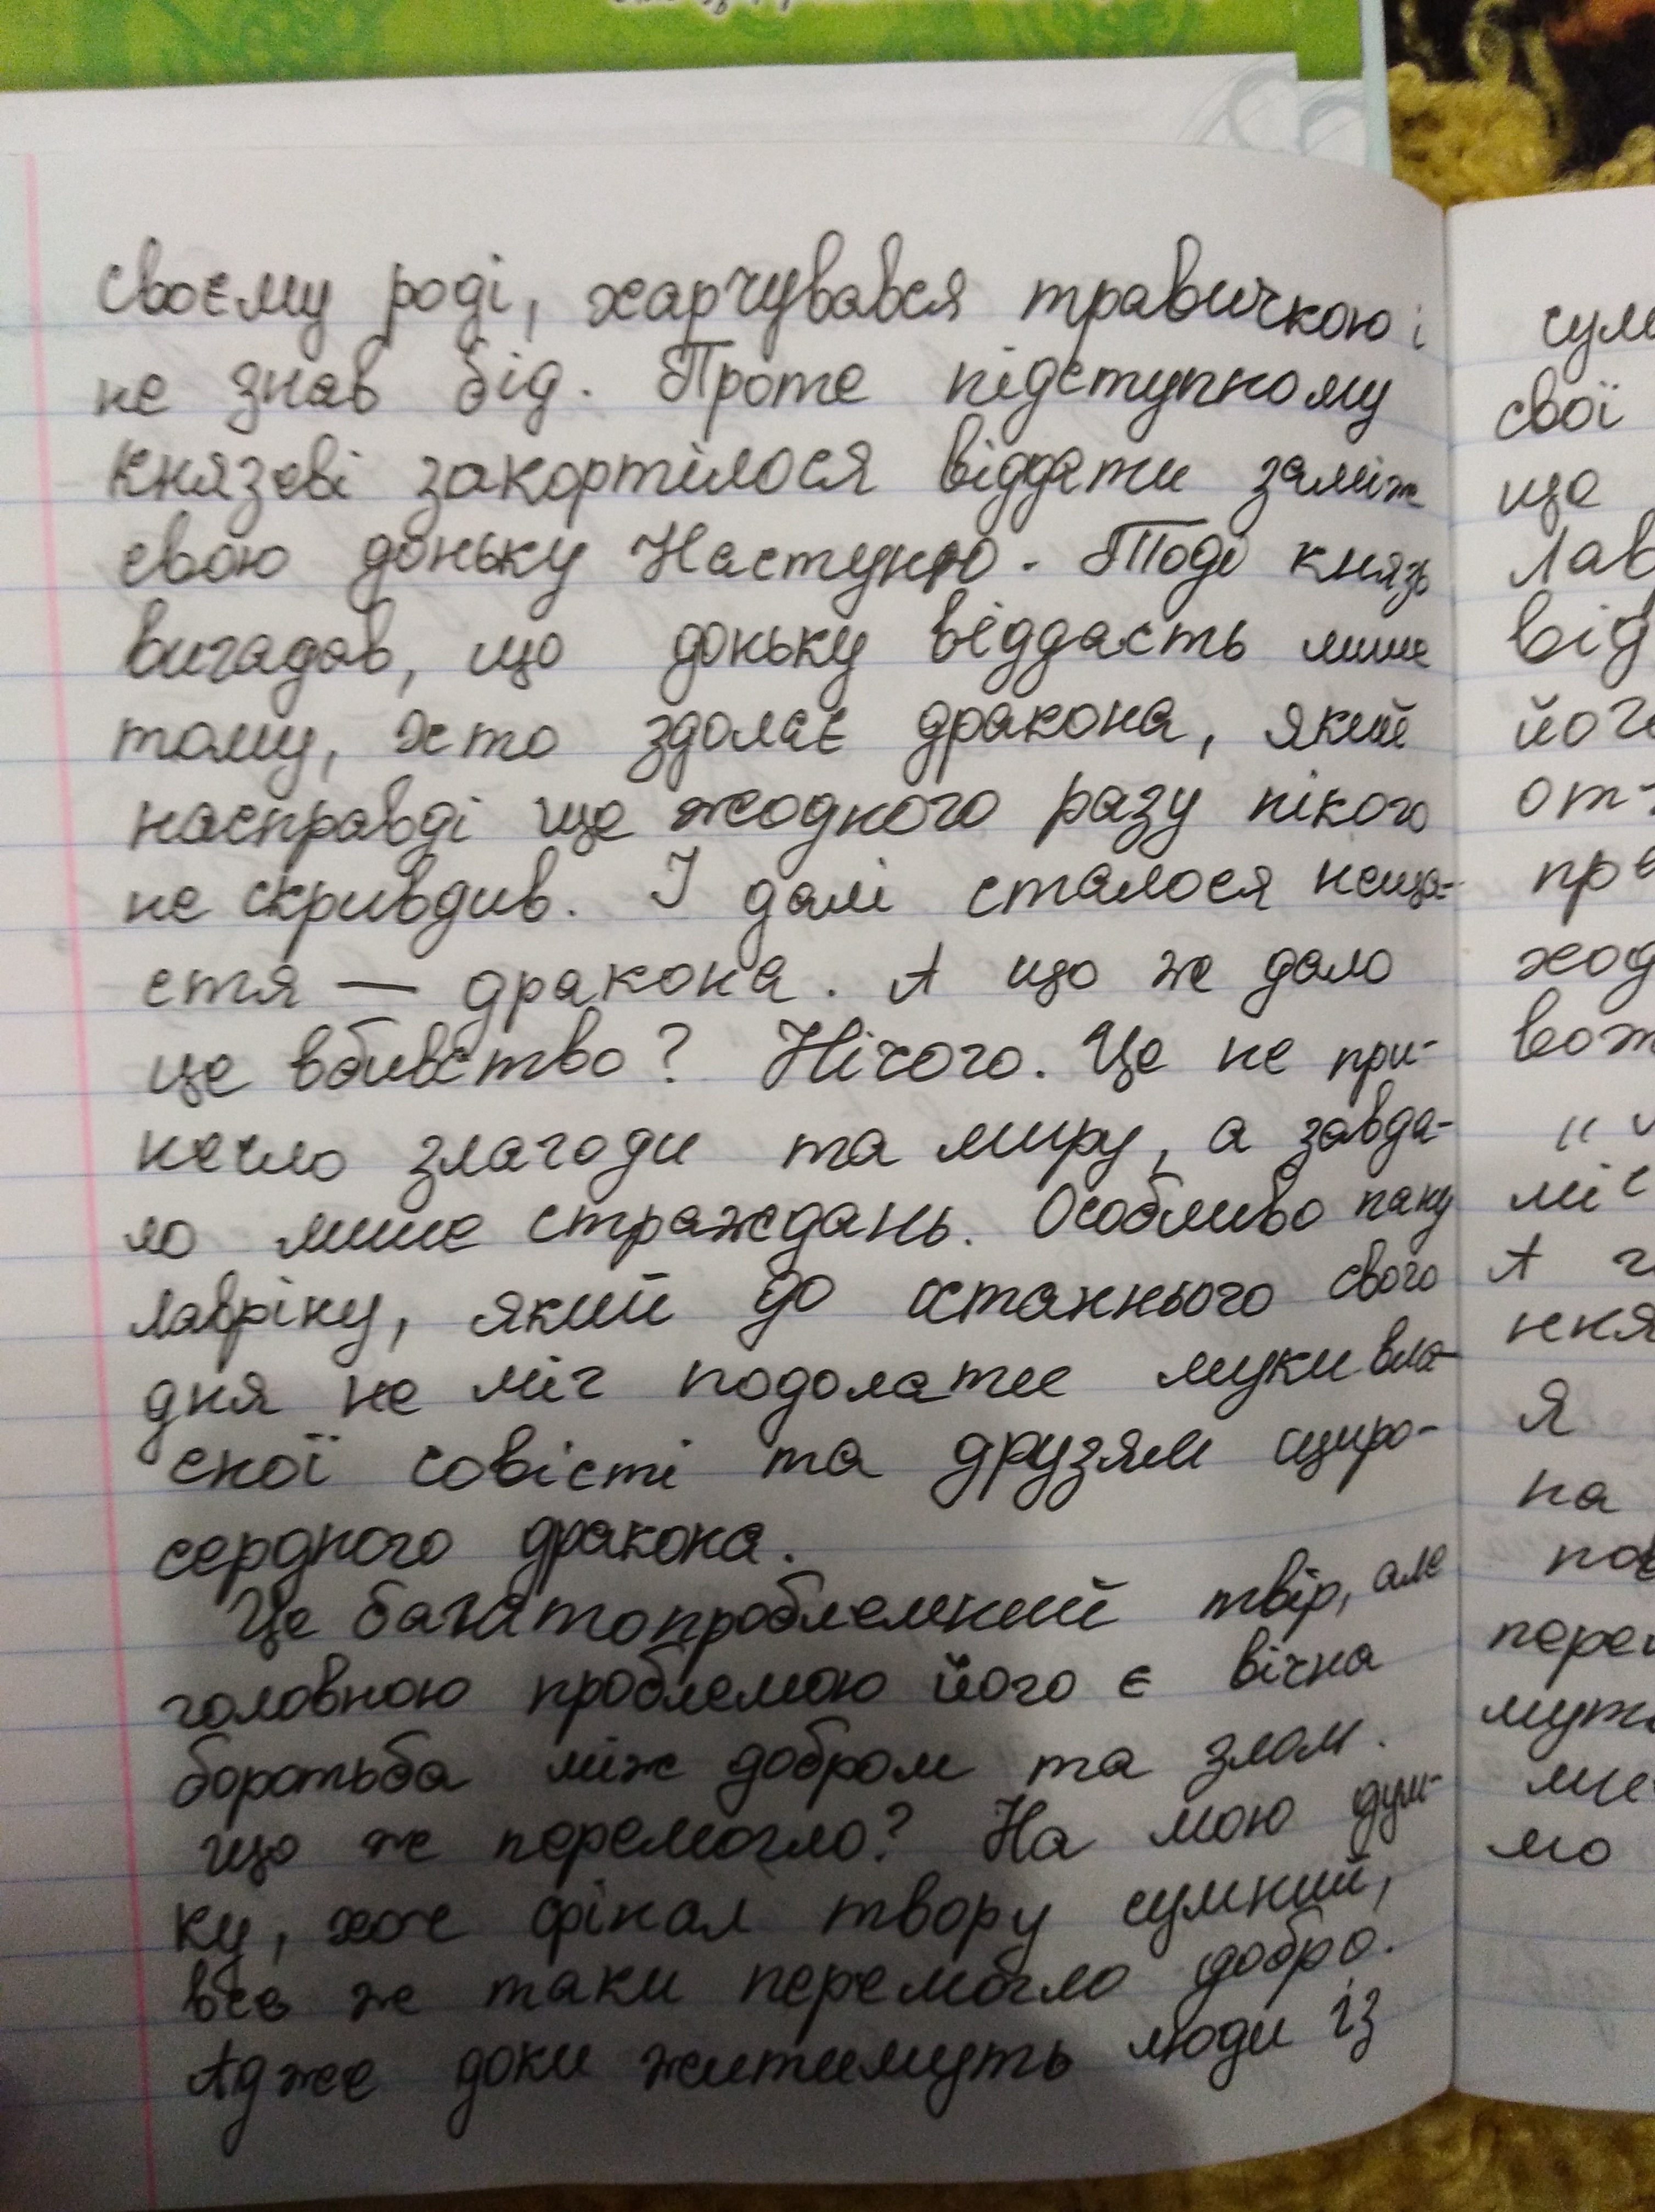 своєму роді, харчувався травичкою і
не знав бід. Проте підступному
князеві закортілося віддати заміж
свою доньку Настуню. Тоді князь
вигадав, що доньку віддасть лише
тому, хто здолає дракона, який
насправді ще жодного разу нікого
не скривдив. І далі сталося неща-
стя — дракона. А що ж дало
це вбивство? Нічого. Це не при-
несло злагоди та миру, а завда-
ло лише страждань. Особливо пану
Лавріну, який до останнього свого
дня не міг подолати муки вла-
сної совісті та друзям щиро-
сердного дракона.
Це багатопроблемний твір, але
головною проблемою його є вічна
боротьба між добром та злом.
Що ж перемогло? На мою дум-
ку, хоч фінал твору сумний,
все ж таки перемогло добро.
Адже доки житимуть люди із
свої
ще
Лав
від
йог
от
пре
ход
вож
міс
А
ння
Я
на
пов
мо